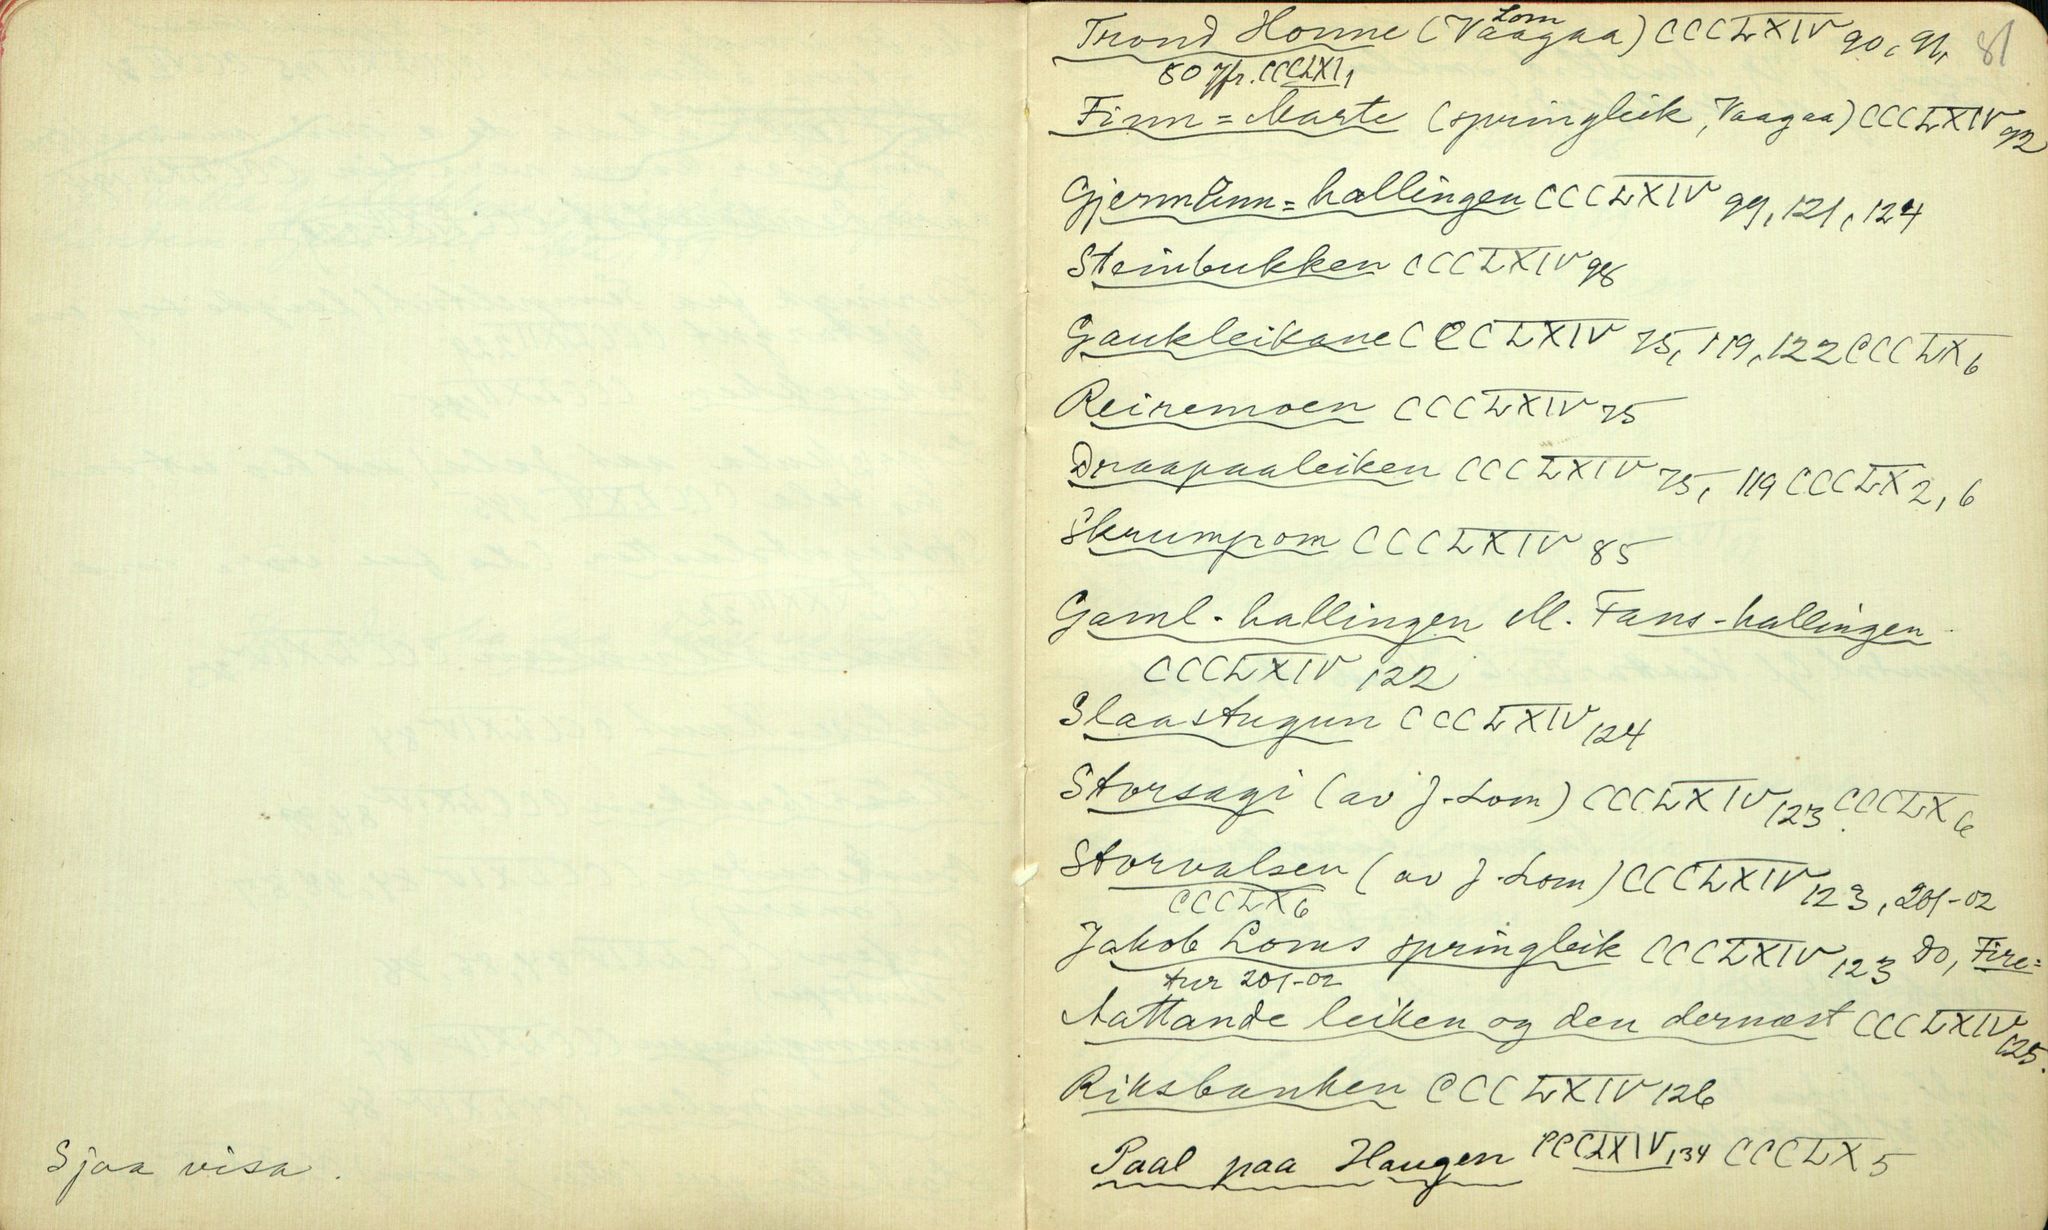 Sjaa visa.
81
Lom
Trond Honne (Vaagaa) CCCLXIV 90, 91,
80 Jfr. CCCLXI,
Finn=Marte (springleik, Vaagaa) CCCLXIV 92
Gjermunn=hallingen CCCLXIV 99, 121, 124
Steinbukken CCCLXIV 98
Gaukleikane CCCLXIV 75, 119, 122 CCCLX 6
Reiremoen CCCLXIV 75
Draapaaleiken CCCLXIV 75, 119 CCCLX 2, 6
Skrumpom CCCLXIV 85
Gaml-hallingen el. Fans-hallingen
CCCLXIV 122
Slaastugun CCCLXIV 124
Storsagi (av J. Lom) CCCLXIV 123 CCCLX 6
Storvalsen (av J. Lom) CCCLXIV 123, 201-02
CCCLX 6
Jakob Loms springleik CCCLXIV 123 Do, Fire=
tur 201-02
Nattande leiken og den dernæst CCCLXIV 125.
Riksbanken CCCLXIV 126
Paal paa Haugen CCCLXIV 134 CCCLX 5